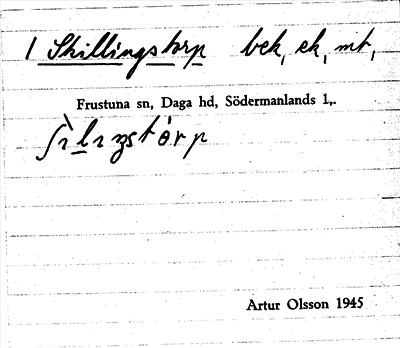 1 Skillingstorp bek, ek, mt,
Frustuna sn, Daga hd, Södermanlands l,.
ʃìlıŋstórp
Artur Olsson 1945